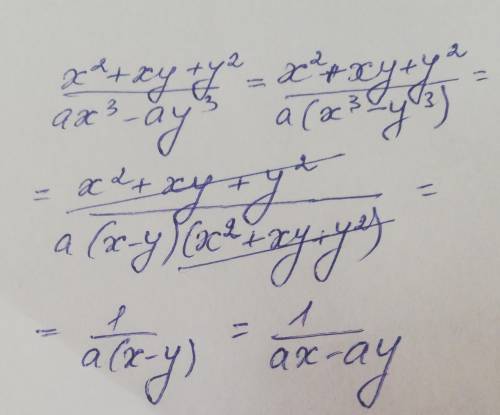 (x²+xy+y²)/(ax³-ay³) = (x²+xy+y²)/(a(x³-y³)) =
= (x²+xy+y²)/(a(x-y)(x²+xy+y²)) =
= 1/(a(x-y)) = 1/(ax-ay)